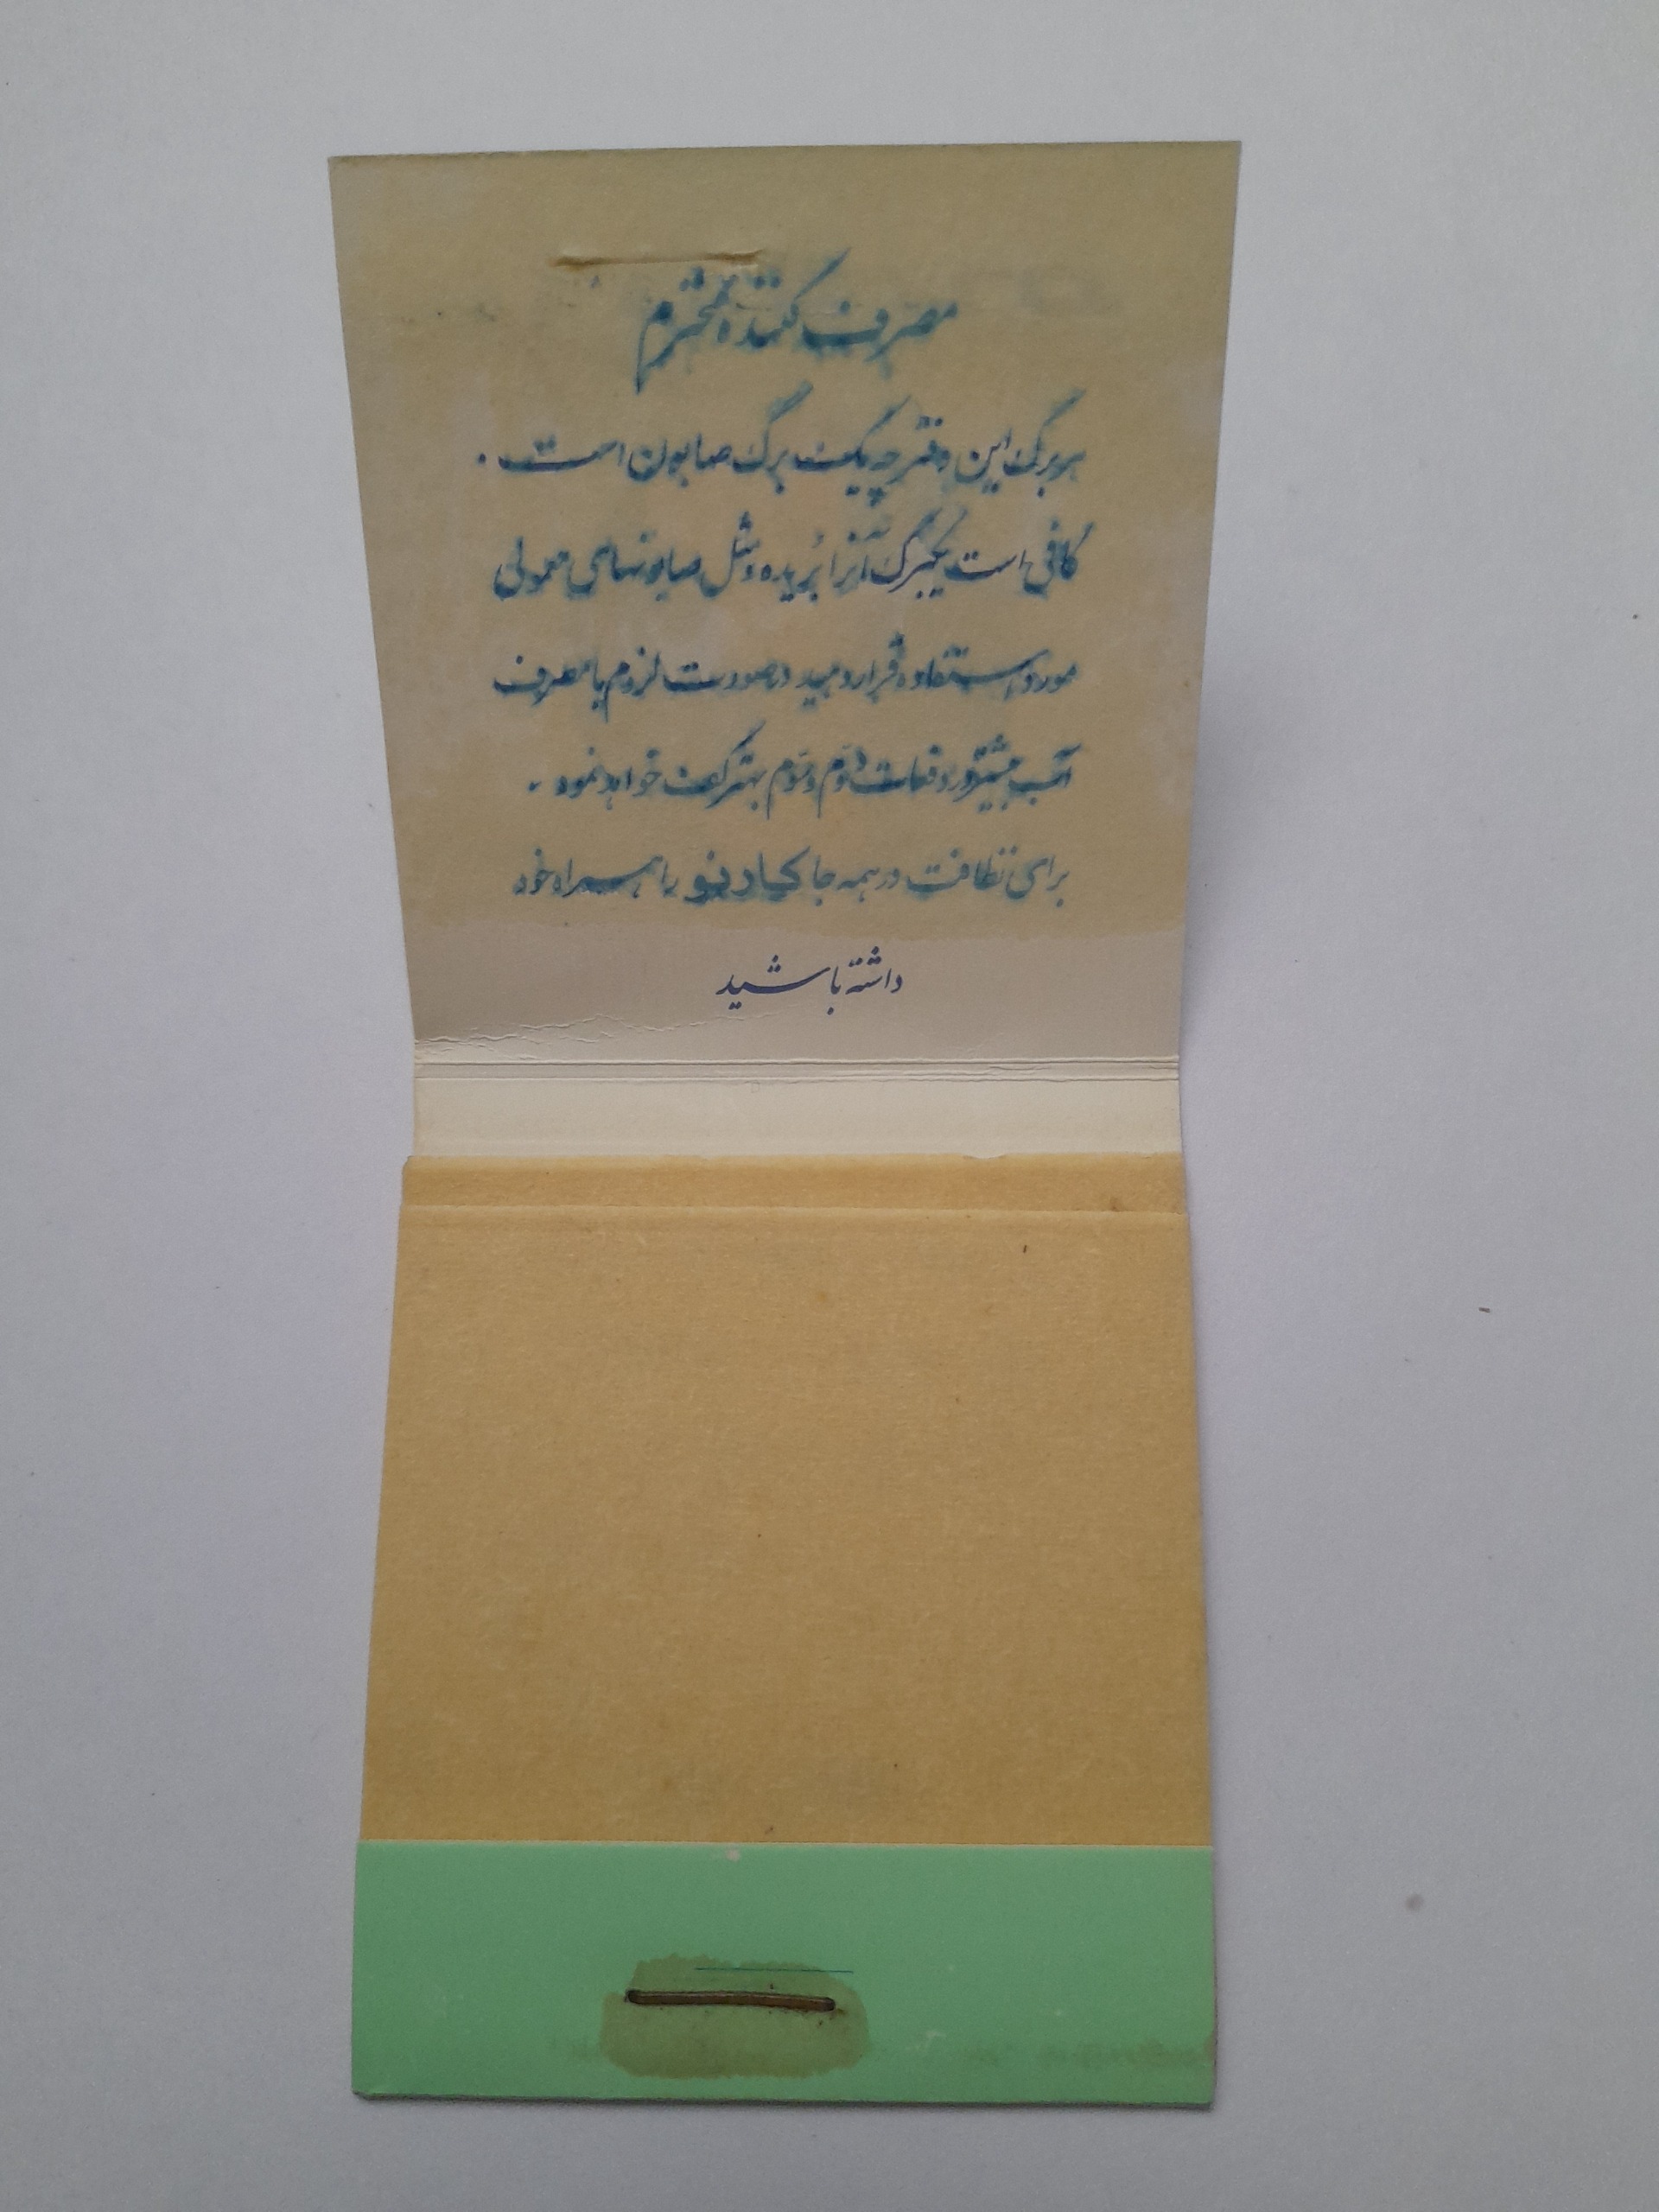 مصرف کننده محترم
هر برگ این دفترچه یک برگ صابون است .
کافی است یکبرگ آنرا بُریده و مثل صابونهای معمولی
مورد استفاده قرار دهید در صورت لزوم با مصرف
آب بیشتر در دفعات دوّم و سوّم بهتر کف خواهد نمود .
برای نظافت در همه جا کیادینو را همراه خود
داشته باشید